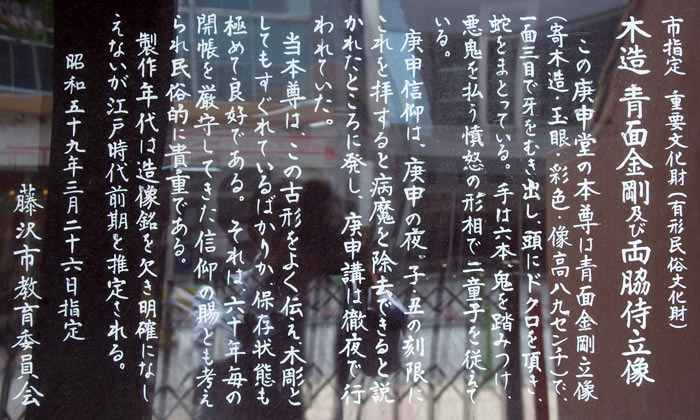 市指定 重要文化財(有形民俗文化財)
木造 青面金剛及び両脇侍立像
この庚申堂の本尊は青面金剛立像
(寄木造・玉眼・彩色・像高八九センチ)で、
一面三目で牙をむき出し、頭にドクロを頂き、
蛇をまとっている。手は六本、鬼を踏みつけ、
悪鬼を払う憤怒の形相で二童子を従えて
いる。
庚申信仰は、庚申の夜、子・丑の刻限に
これを拝すると病魔を除去できると説
かれたところに発し、庚申講は徹夜で行
われていた。
当本尊は、この古形をよく伝え、木彫と
してもすぐれているばかりか、保存状態も
極めて良好である。それは六十年毎の
開帳を厳守してきた信仰の賜とも考え
られ民俗的に貴重である。
製作年代は造像銘を欠き明確になし
えないが江戸時代前期と推定される。
昭和五十九年三月二十六日指定
藤沢市教育委員会